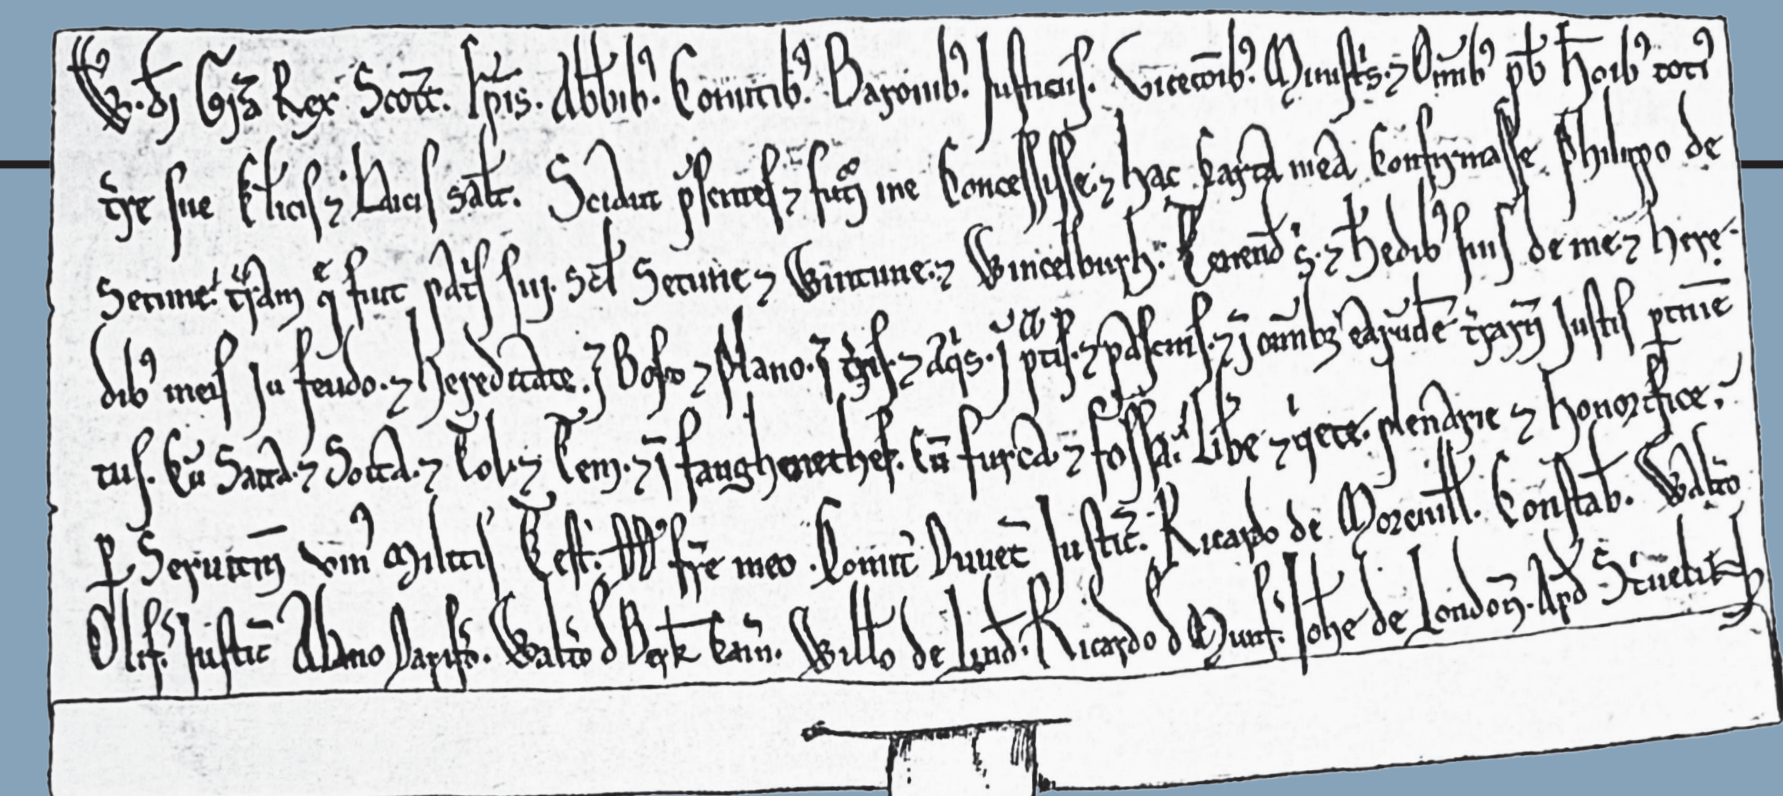 W. di Gra Rex Scott. Epis. Abbib'. Comitib'. Baronib'. Justiciis. Vicecomib'. Ministris. ⁊ Omnib' pb Hoib' toti'
tre sue Klicis ⁊ Laicis salt. Sciant psentes ⁊ futi me Concessisse. ⁊ hac karta mea Confirmasse Philippo de
Setune. tram q fuit patis sui. scl Setune ⁊ Wintune. ⁊ Wincelburh. Tenend s. ⁊ Hedib' suis de me. ⁊ here-
dib' meis In feudo. ⁊ hereditate. ī Bosco ⁊ Plano. ī tris. ⁊ Aqis. ī ptis. ⁊ pascuis. ⁊ ī omib; earude trarū Justis ptinē
tiis. Cū Sacca. ⁊ Socca. ⁊ Tol. ⁊ Tem. ⁊ ī fanghenethef. Cū furca. ⁊ fossa. Libe ⁊ qete. plenarie ⁊ honorifice,
p Seruitiū vni' Militis Test. Dd fre meo. Comit Duuec Justic. Ricardo de Moreuill. Constab. Walto
Olif. Justic Alano Dapifo. Walto d Berk Cam. Willo de Lind. Ricardo d Munf. Johe de London. Apd Striuelin